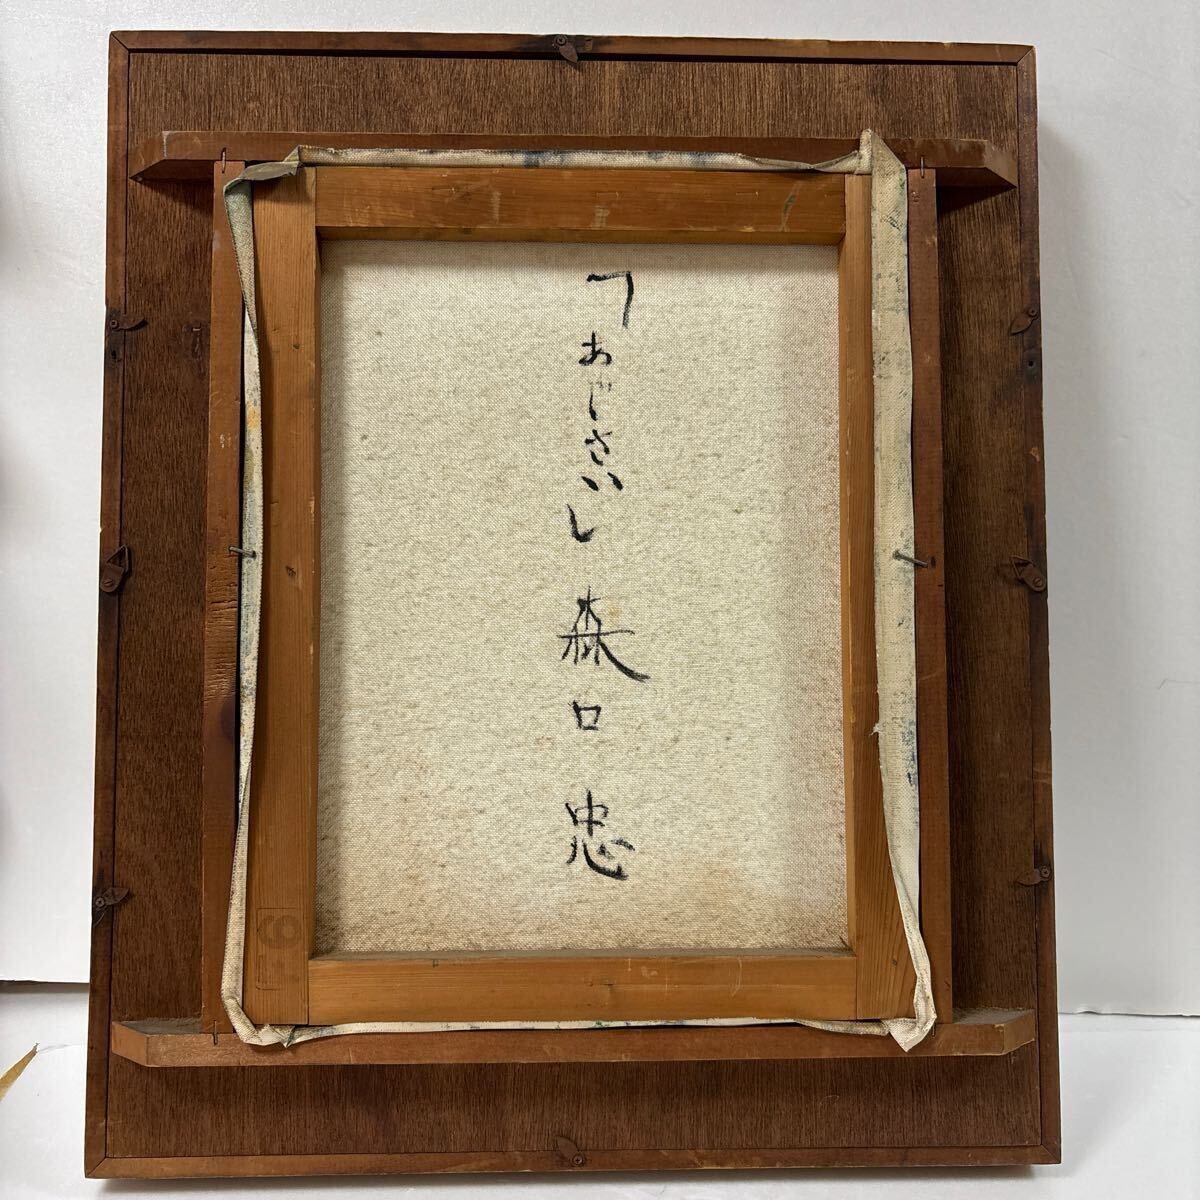 「あじさい」 森口 忠
6